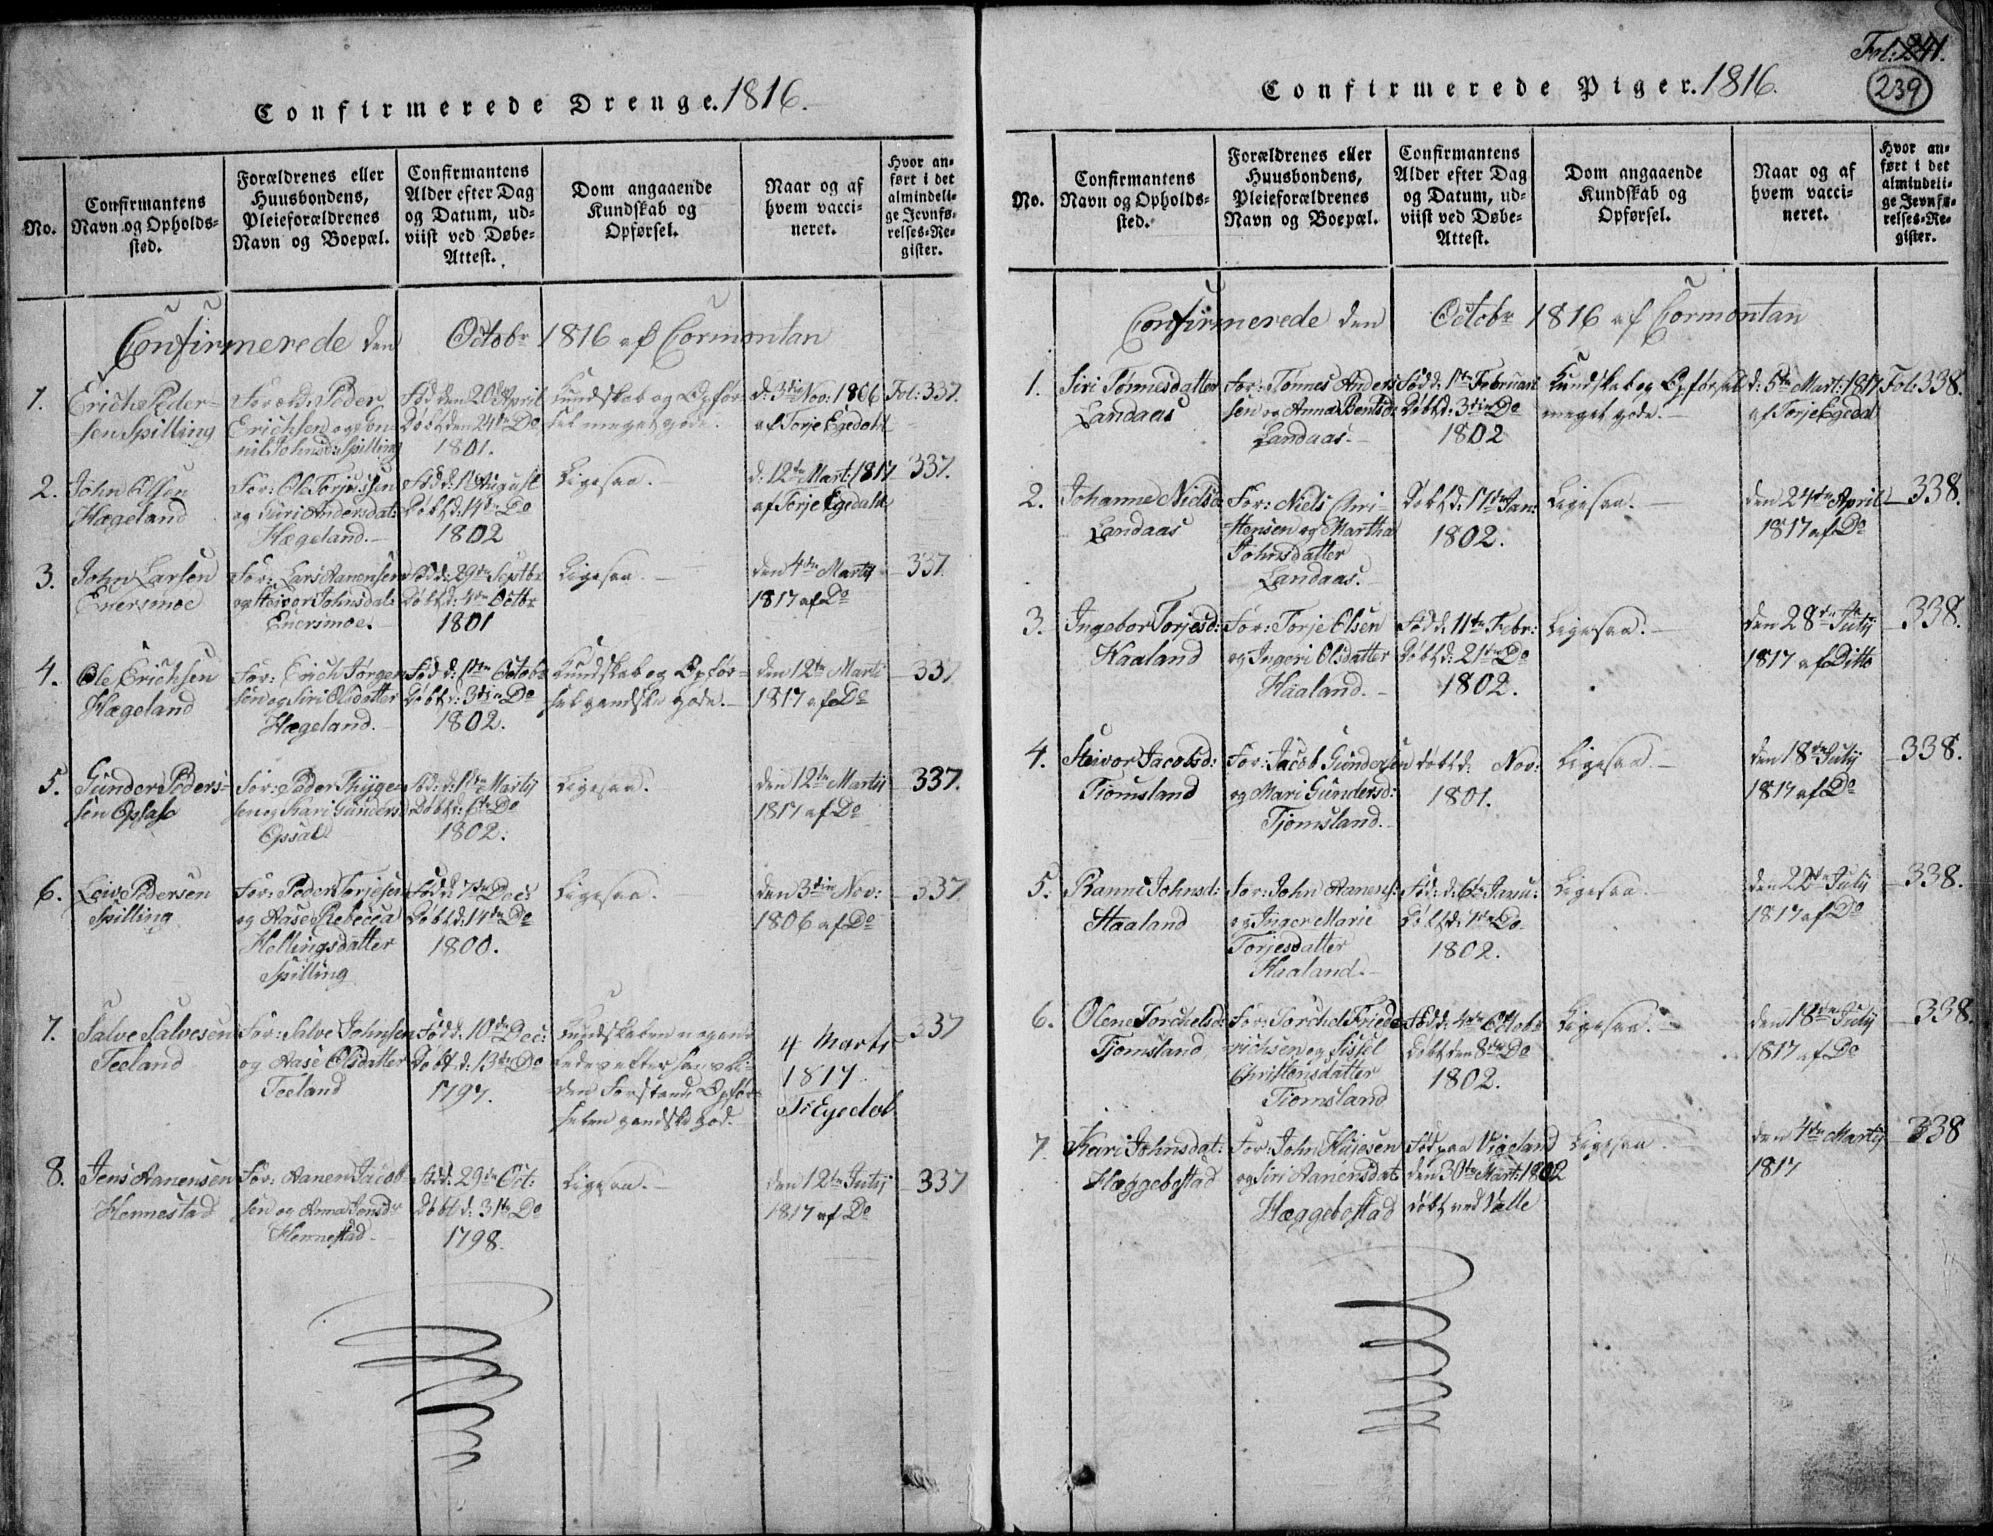 Confirmerede Drenge. 1816.
No.
Confirmantens
Navn og Opholds-
sted.
Forældrenes eller
Huusbondens,
Pleieforældrenes
Navn og Boepæl.
Confirmantens
Alder efter Dag
og Datum, ud-
viist ved Døbe-
Attest.
Dom angaaende
Kundskab og
Opførsel.
Naar og af
hvem vacci-
neret.
Hvor an-
ført i det
almindeli-
ge Jevnfø-
relses-Re-
gister.
Confirmerede den Octobr 1816 af Cormontan
1.
Erich Peder-
sen Spilling
For: Peder
Erichsen og
Johnsd: Spilling
Fød den 20de April
Døbt den 24de Do
1801.
Kundskab og Opfør-
sel meget gode.
d: 3die Nov: 1806
af Torje Egedahl
Fol: 337.
2.
John Olsen
Hægeland
For: Ole Torjussen
og Siri Andersdat:
Hægeland.
Fød d: 1 August
Døbt d: 14de Do
1802
Ligesaa.
d: 12te Mart: 1817
af Torje Egedahl
337.
3.
John Larsen
Enersmoe
For: Lars Aanensen
og Steivor Johnsdat:
Enersmoe.
Fød d: 29de Septbr
Døbt d: 4de Octbr
1801
Ligesaa.
den 4de Martij
1817 af Do
337.
4.
Ole Erichsen
Hægeland
For: Erich Jørgen-
sen og Siri Olsdatter
Hægeland.
Fød d: 1ste Octobr
Døbt d: 3die Do
1802.
Kundskab og Opfør-
sel gandske gode.
den 12te Marti
1817 af Do
337
5.
Gunder Peders-
sen Opsahl
For: Peder Thygen
sen og Kari Gunders:
Opsal
Fød: d: 1ste Martij
Døbt d: 6te Do
1802.
Ligesaa.
den 12te Martij
1817 af Do
337.
6.
Leiv Pedersen
Spilling
For: Peder Torjesen
og Aase Rebecca
Hellingsdatter
Spilling
Fød d: 7de Dec:
Døbt d: 14de Do
1800.
Ligesaa.
den 3die Nov:
1806 af Do
337
7.
Salve Salvesen
Teeland
For: Salve Johnsen
og Aase Olsdatter
Teeland
Fød d: 10de Dec:
Døbt d: 13de Do
1797.
Kundskaben nogenl:
efter
den Forstand, Opfør-
selen gandske god.
4 Marts
1817
T: Egedal
337
8.
Jens Aanensen
Hennestad
For: Aanen Jacob-
sen og Anna Jonsdr
Hennestad
Fød d: 29de Oct:
Døbt d: 31te Do
1798.
Ligesaa.
den 12te Julij
1817 af Do
337
Fol: 241.
239
Confirmerede Piger. 1816.
No.
Confirmantens
Navn og Opholds-
sted.
Forældrenes eller
Huusbondens,
Pleieforældrenes
Navn og Boepæl.
Confirmantens
Alder efter Dag
og Datum, ud-
viist ved Døbe-
Attest.
Dom angaaende
Kundskab og
Opførsel.
Naar og af
hvem vacci-
neret.
Hvor an-
ført i det
almindeli-
ge Jevnfø-
relses-Re-
gister.
Confirmerede den Octobr 1816 af Cormontan
1.
Siri Tønnesdatter
Landaas
For: Tønnes Anders
sen og Anna Bentsd:
Landaas.
Fød d: 1ste Februari
Døbt d: 3die Do
1802
Kundskab og Opførsel
meget gode.
d: 5te Mart: 1817
af Torje Egedal
Fol: 338.
2.
Johanne Nielsd:
Landaas
For: Niels Chri-
stensen og Martha
Johnsdatter
Landaas.
Døbt d: 17de Jan:
1802.
Ligesaa.
den 24de April
1817 af Do
338.
3.
Ingebor Torjesd:
Haaland
For: Torje Olsen
og Ingeri Olsdatter
Haaland.
Fød d: 11te Febr:
Døbt d: 21de Do
1802.
Ligesaa.
den 28de Julij
1817 af Ditto
338.
4.
Steivor Jacobsd:
Tiomsland
For: Jacob Gundersen
og Mari Gundersd:
Tjomsland.
døbt d: Nov:
1801.
Ligesaa.
den 18de Julij
1817 af Do
338.
5.
Ranni Johnsd:
Haaland
For: John Aanens:
og Inger Marie
Torjesdatter
Haaland.
Fød: d: 6te Janu:
Døbt d: Do
1802.
Ligesaa.
den 22de Julij
1817 af Do
338.
6.
Olene Torchelsd:
Tjomsland
For: Torchel Fried-
richsen og Sissel
Christensdatter
Tiomsland
Fød d: 4de Octob:
Døbt den 8de Do
1802.
Ligesaa.
den 18de Julij
1817 af Do
338.
7.
Kari Johnsdat:
Hæggebostad
For: John
og Siri Aanensdat:
Hæggebostad
Fød paa Vigeland
den 30te Mart: 1802
døbt ved Valle
Ligesaa
den 4de Martij
1817
338